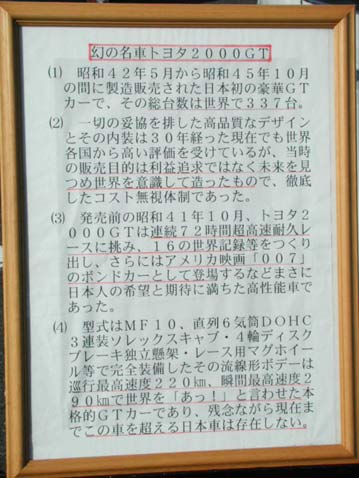 幻の名車トヨタ2000GT
(1) 昭和42年5月から昭和45年10月
の間に製造販売された日本初の豪華GT
カーで、その総台数は世界で337台。
(2) 一切の妥協を排した高品質なデザイン
とその内装は30年経った現在でも世界
各国から高い評価を受けているが、当時
の販売目的は利益追求ではなく未来を見
つめ世界を意識して造ったもので、徹底
したコスト無視体制であった。
(3) 発売前の昭和41年10月、トヨタ2
000GTは連続72時間超高速耐久レ
ースに挑み、16の世界記録等をつくり
出し、さらにはアメリカ映画「007」
のボンドカーとして登場するなどまさに
日本人の希望と期待に満ちた高性能車で
あった。
(4) 型式はMF10、直列6気筒DOHC
3連装ソレックスキャブ・4輪ディスク
ブレーキ独立懸架・レース用マグホイー
ル等で完全装備したその流線形ボデーは
巡行最高速度220km、瞬間最高速度2
90kmで世界を「あっ!」と言わせた本
格的GTカーであり、残念ながら現在ま
でこの車を超える日本車は存在しない。